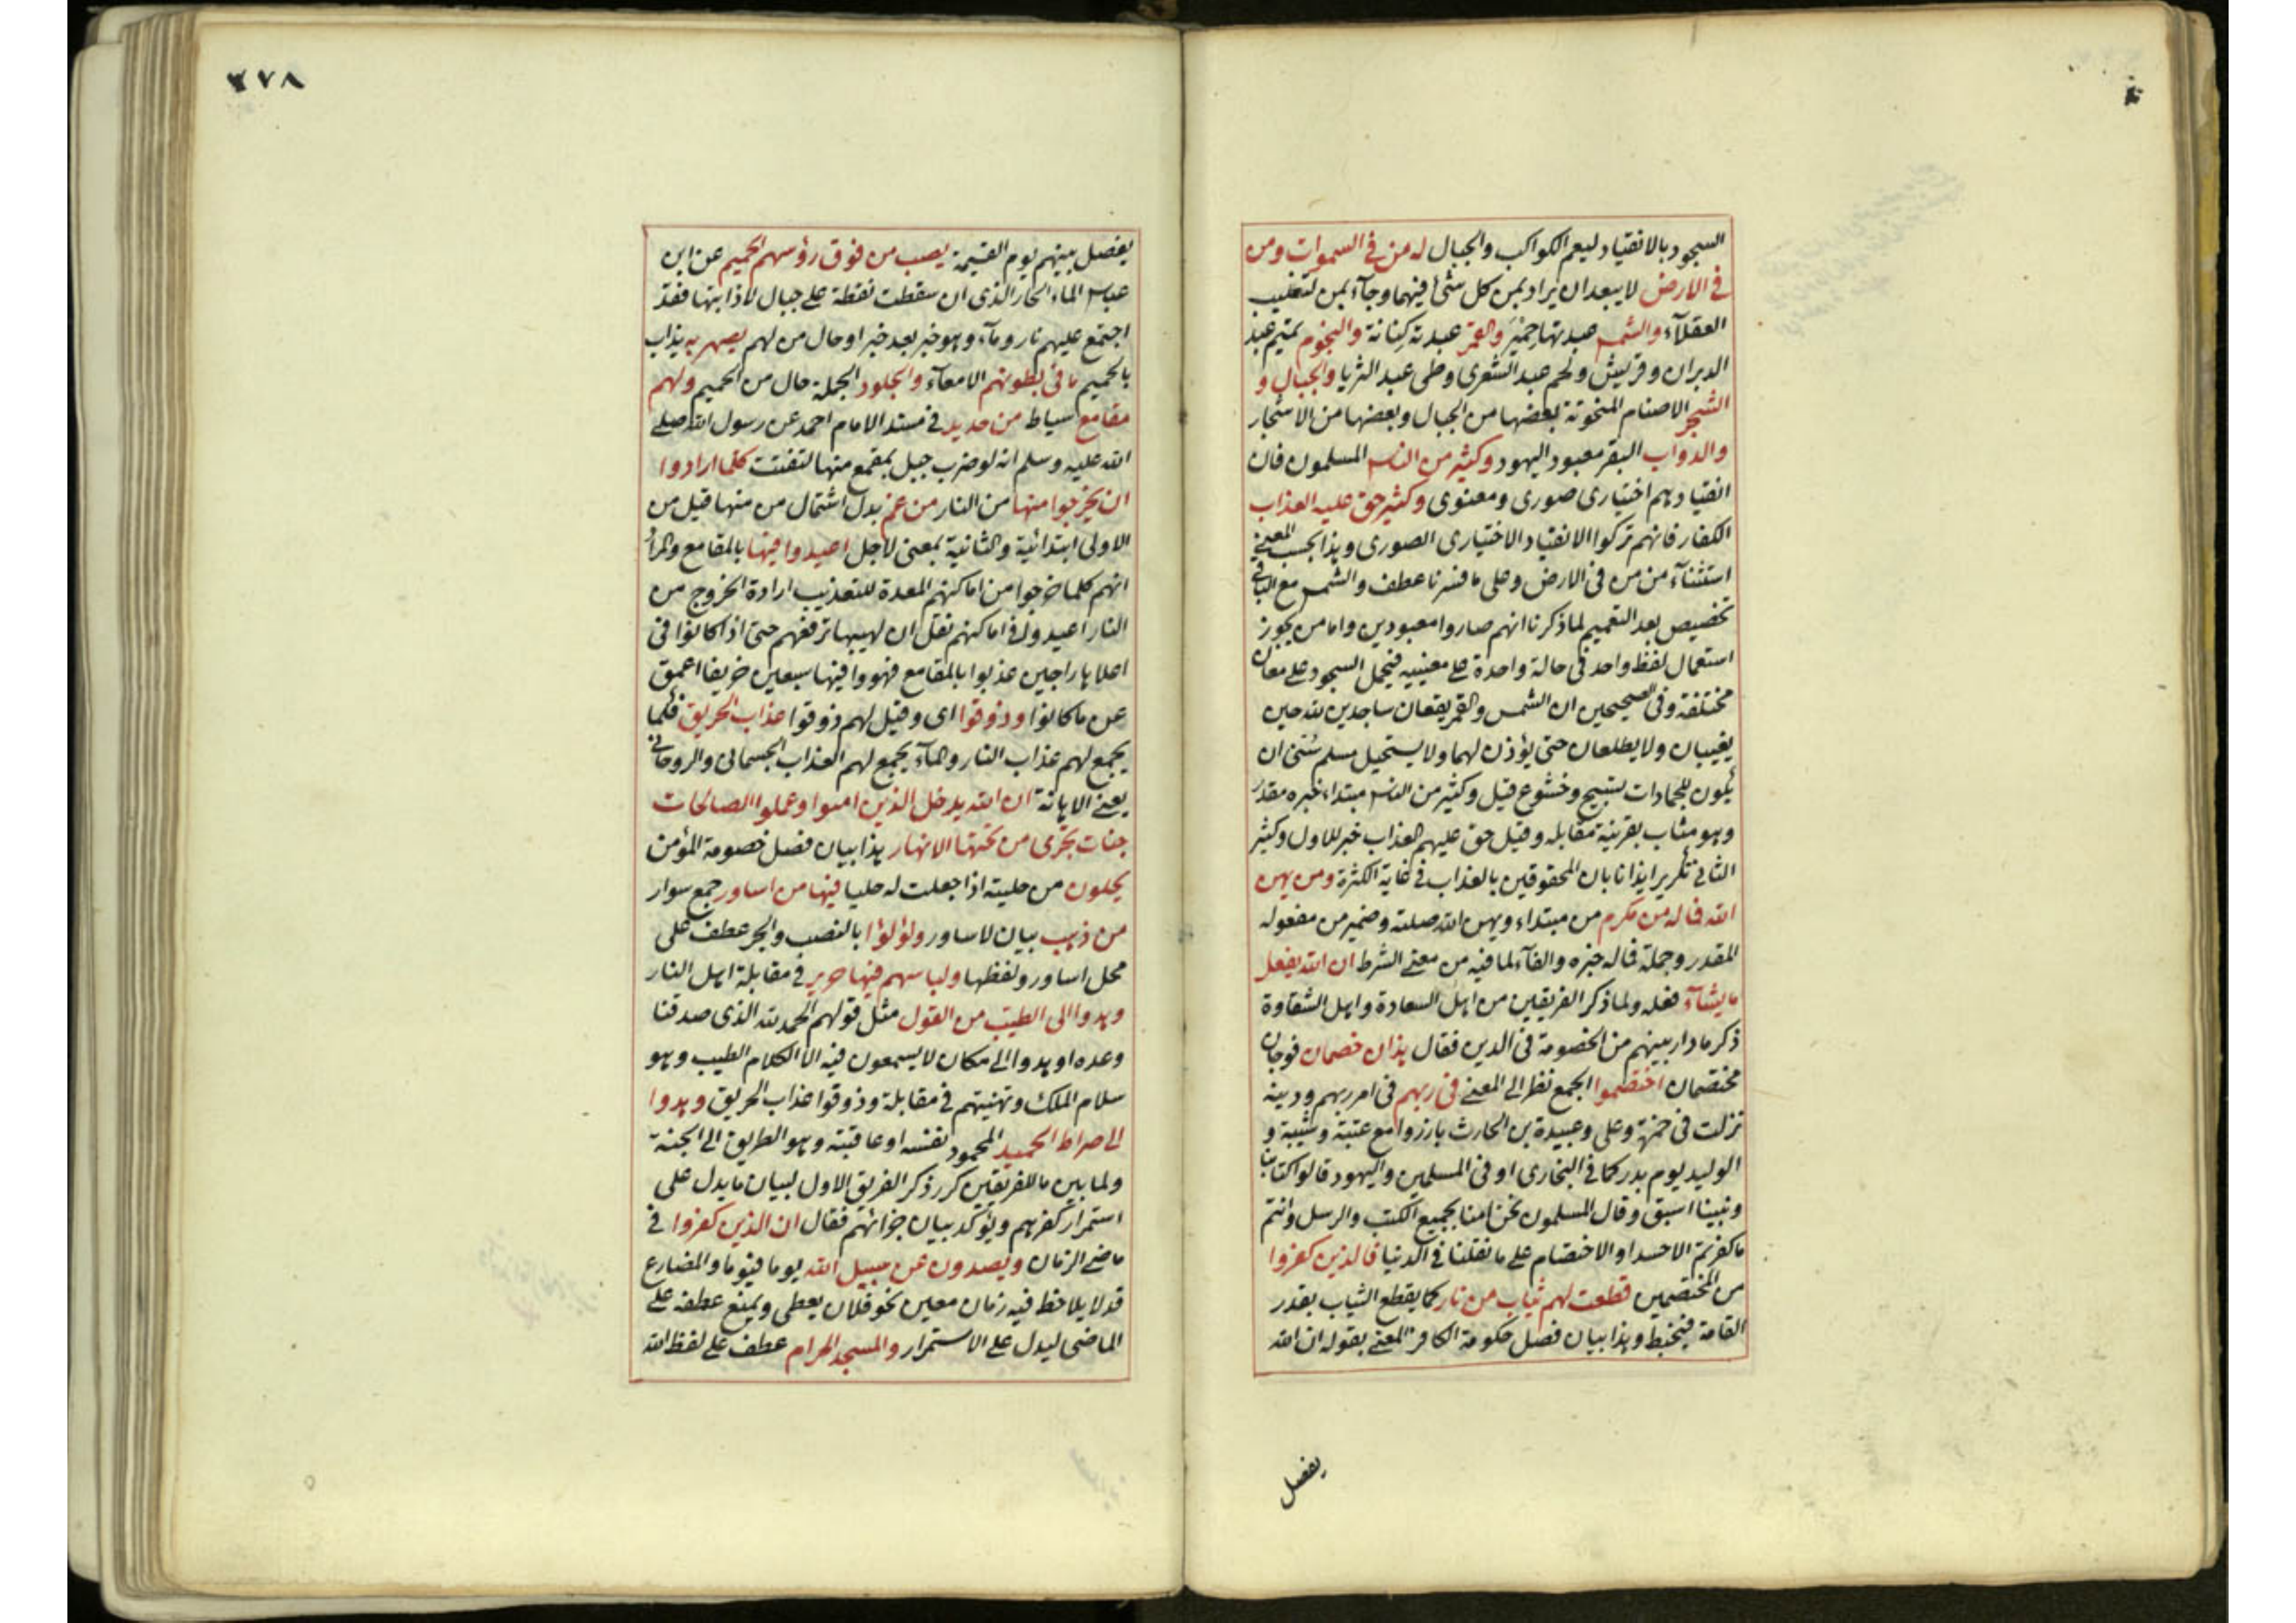 السجود بالانقياد ليعم الكواكب والجبال له من في السموات ومن
في الارض لا يبعد ان يراد بمن كل شئ فيهما وجاء بمن لتغليب
العقلآء والشمس عبدتها حِمْيَر والقمر عبدته كِنانة والنجوم تميم عبد
الدبران وقريش ولخم عبد الشعرى وطى عبد الثريا والجبال و
الشجر الاصنام المنحوتة بعضها من الجبال وبعضها من الاشجار
والدواب البقر معبود اليهود وكثير من الناس المسلمون فان
انقيادهم اختيارى صورى ومعنوى وكثير حق عليه العذاب
الكفار فانهم تركوا الانقياد الاختيارى الصورى وهذا بحسب المعنى
استثنآء من من فى الارض وعلى ما فسرنا عطف والشمس مع الباقى
تخصيص بعد التعميم لما ذكرنا انهم صاروا معبودين واما من يجوز
استعمال لفظ واحد فى حالة واحدة على معنييه فيحمل السجود على معان
مختلفة وفى الصحيحين ان الشمس والقمر يقعان ساجدين لله حين
يغيبان ولا يطلعان حتى يؤذن لهما ولا يستحيل مسلم سُنّى ان
يكون للجمادات تسبيح وخشوع قيل وكثير من الناس مبتداء خبره مقدر
وهو مثاب بقرينة مقابله وقيل حق عليهم العذاب خبر للاول وكثير
الثانى تكرير ايذانا بان المحقوقين بالعذاب فى غاية الكثرة ومن يهن
الله فما له من مكرم من مبتداء ويهن الله صلته وضمير من مفعوله
المقدر وجملة فماله خبره والفآء لما فيه من معنى الشرط ان الله يفعل
ما يشآء فعله ولما ذكر الفريقين من اهل السعادة واهل الشقاوة
ذكر ما دار بينهم من الخصومة فى الدين فقال هذان خصمان فوجان
مختصمان اختصموا الجمع نظر الى المعنى فى ربهم فى امر ربهم ودينه
نزلت فى حمزة وعلى وعبيدة بن الحارث بارزوا مع عتبة وشيبة و
الوليد يوم بدر كما فى البخارى او فى المسلمين واليهود قالوا كتابنا
ونبينا اسبق وقال المسلمون نحن امنا بجميع الكتب والرسل وانتم
ما كفرتم الا حسدا والاختصام على ما نقلنا فى الدنيا فالذين كفروا
من المختصمين قطعت لهم ثياب من نار كما يقطع الثياب بقدر
القامة فيخيط وهذا بيان فصل حكومة الكافر المعنى بقوله ان الله
يفصل
٢٧٨
يفصل بينهم يوم القيمة يصب من فوق رؤسهم الحميم عن ابن
عباس الماء الحار الذى ان سقطت نقطة على جبال لاذابتها فقد
اجتمع عليهم نار ومآء وهو خبر بعد خبر او حال من لهم يصهر به يذاب
بالحميم ما فى بطونهم الامعآء والجلود الجملة حال من الحميم ولهم
مقامع سياط من حديد فى مسند الامام احمد عن رسول الله صلى
الله عليه وسلم انه لو ضرب جبل بمقمع منها لتفتت كلما ارادوا
ان يخرجوا منها من النار من غم بدل اشتمال من منها قيل من
الاولى ابتدائية والثانية بمعنى لاجل اعيدوا فيها بالمقامع والمراد
انهم كلما خرجوا من اماكنهم المعدة للتعذيب ارادة الخروج من
النار اعيدوا فى اماكنهم نقل ان لهيبها ترفعهم حتى اذا كانوا فى
اعلاها راجين عذبوا بالمقامع فهووا فيها سبعين خريفا اعمق
عن ما كانوا وذوقوا اى وقيل لهم ذوقوا عذاب الحريق فكما
يجمع لهم عذاب النار والمآء يجمع لهم العذاب الجسمانى والروحانى
يعنى الاهانة ان الله يدخل الذين امنوا وعملوا الصالحات
جنات تجرى من تحتها الانهار هذا بيان فصل خصومة المؤمن
يحلون من حليته اذا جعلت له حليا فيها من اساور جمع سوار
من ذهب بيان لاساور ولؤلؤا بالنصب والجر عطف على
محل اساور ولفظها ولباسهم فيها حرير فى مقابلة اهل النار
وهدوا الى الطيب من القول مثل قولهم الحمد لله الذى صدقنا
وعده او هدوا الى مكان لا يسمعون فيه الا الكلام الطيب وهو
سلام الملك وتهنيتهم فى مقابلة وذوقوا عذاب الحريق وهدوا
الى صراط الحميد المحمود نفسه او عاقبته وهو الطريق الى الجنة
ولما بين ما للفريقين كرر ذكر الفريق الاول لبيان ما يدل على
استمرار كفرهم ويؤكد بيان جزائهم فقال ان الذين كفروا فى
ماضى الزمان ويصدون عن سبيل الله يوما فيوما والمضارع
قد لا يلاحظ فيه زمان معين نحو فلان يعطى ويمنع عطفه على
الماضى ليدل على الاستمرار والمسجد الحرام عطف على لفظ الله